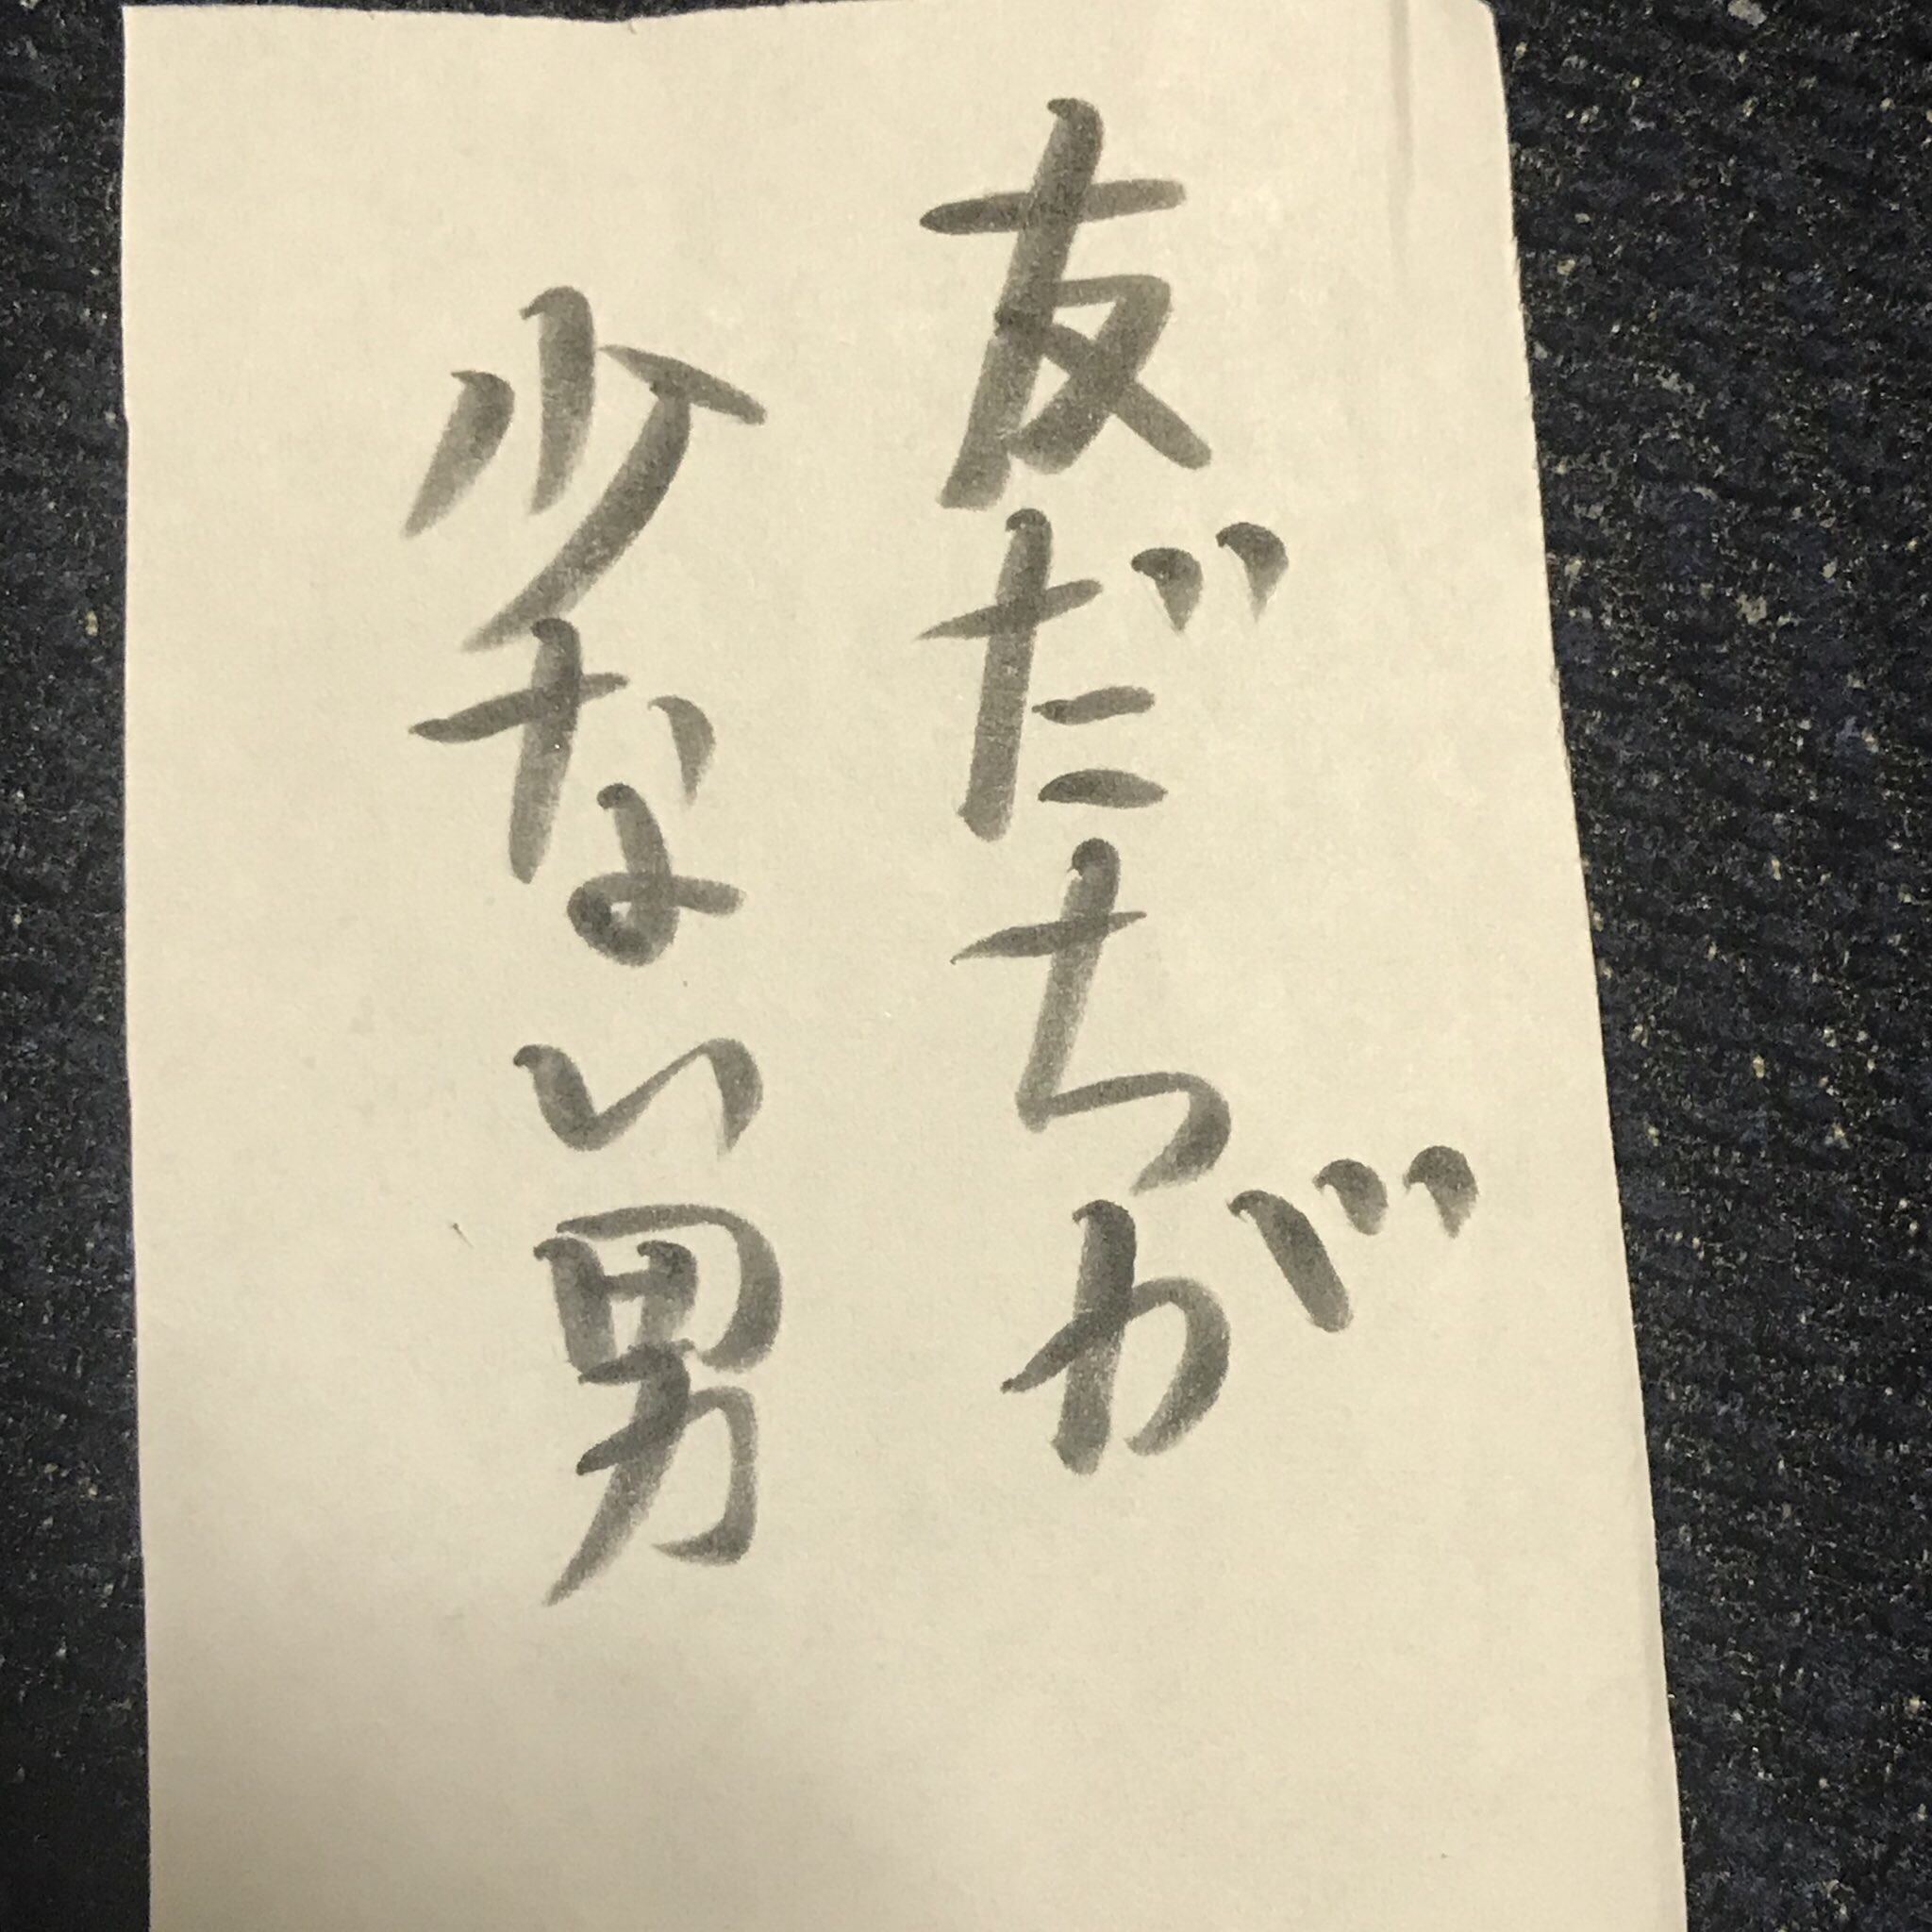 友だちが
少ない男